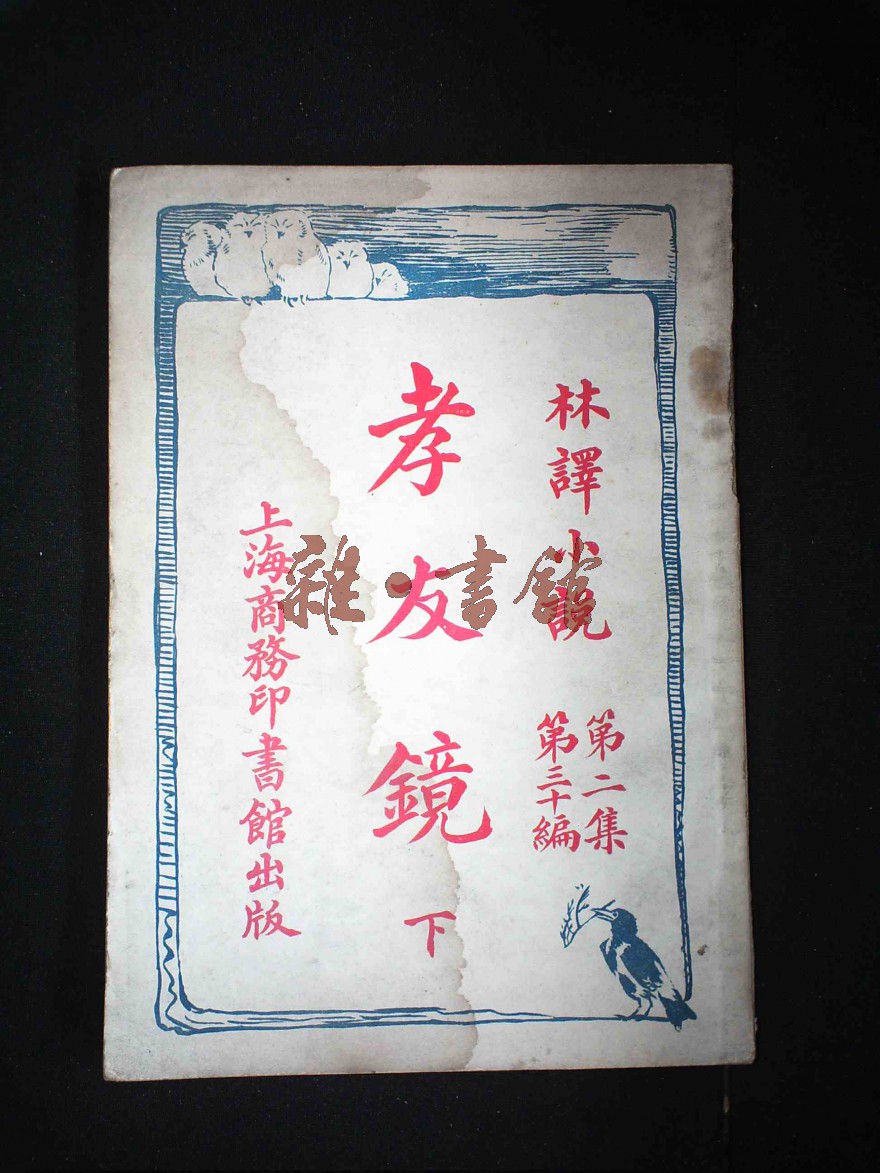 林譯小說
第二集
第三十編
孝友鏡
下
上海商務印書館出版
雜·書館